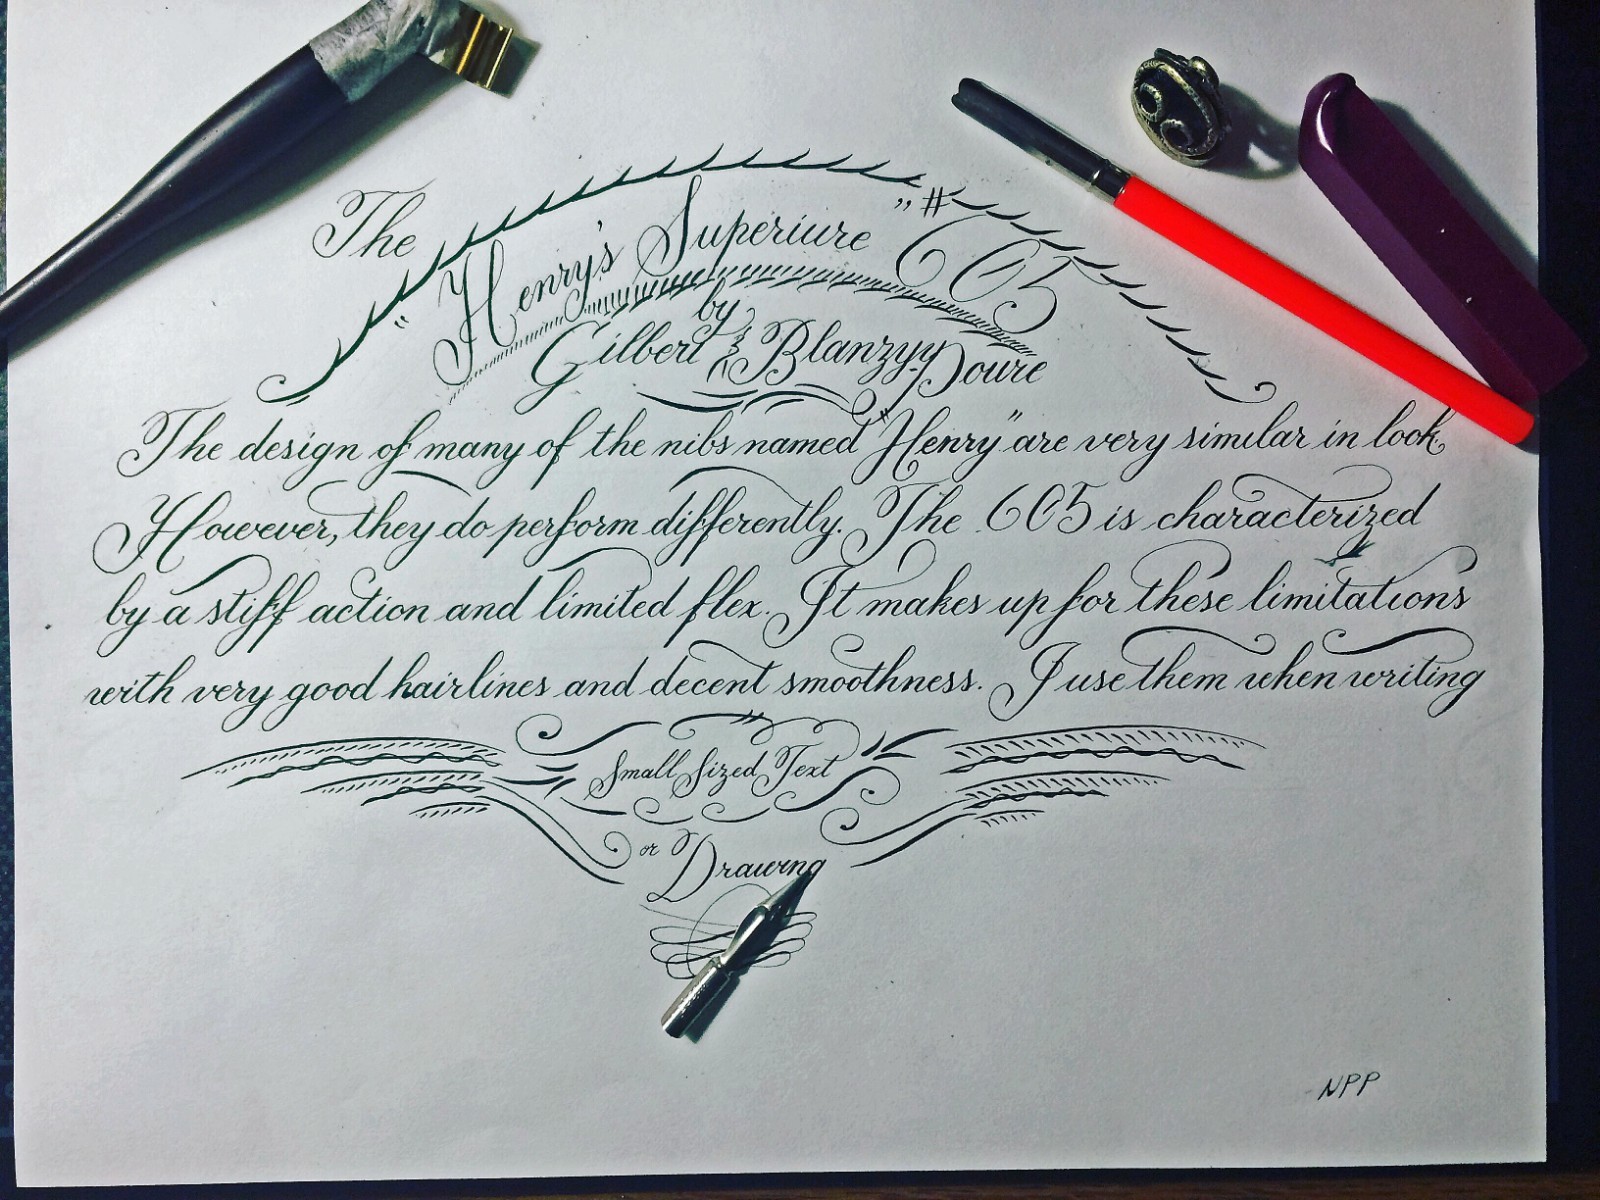 The
"Henry's Superiure" #605
by
Gilbert & Blanzy-Poure
The design of many of the nibs named "Henry" are very similar in look.
However, they do perform differently. The 605 is characterized
by a stiff action and limited flex. It makes up for these limitations
with very good hairlines and decent smoothness. I use them when writing
Small Sized Text
or
Drawing
NPP